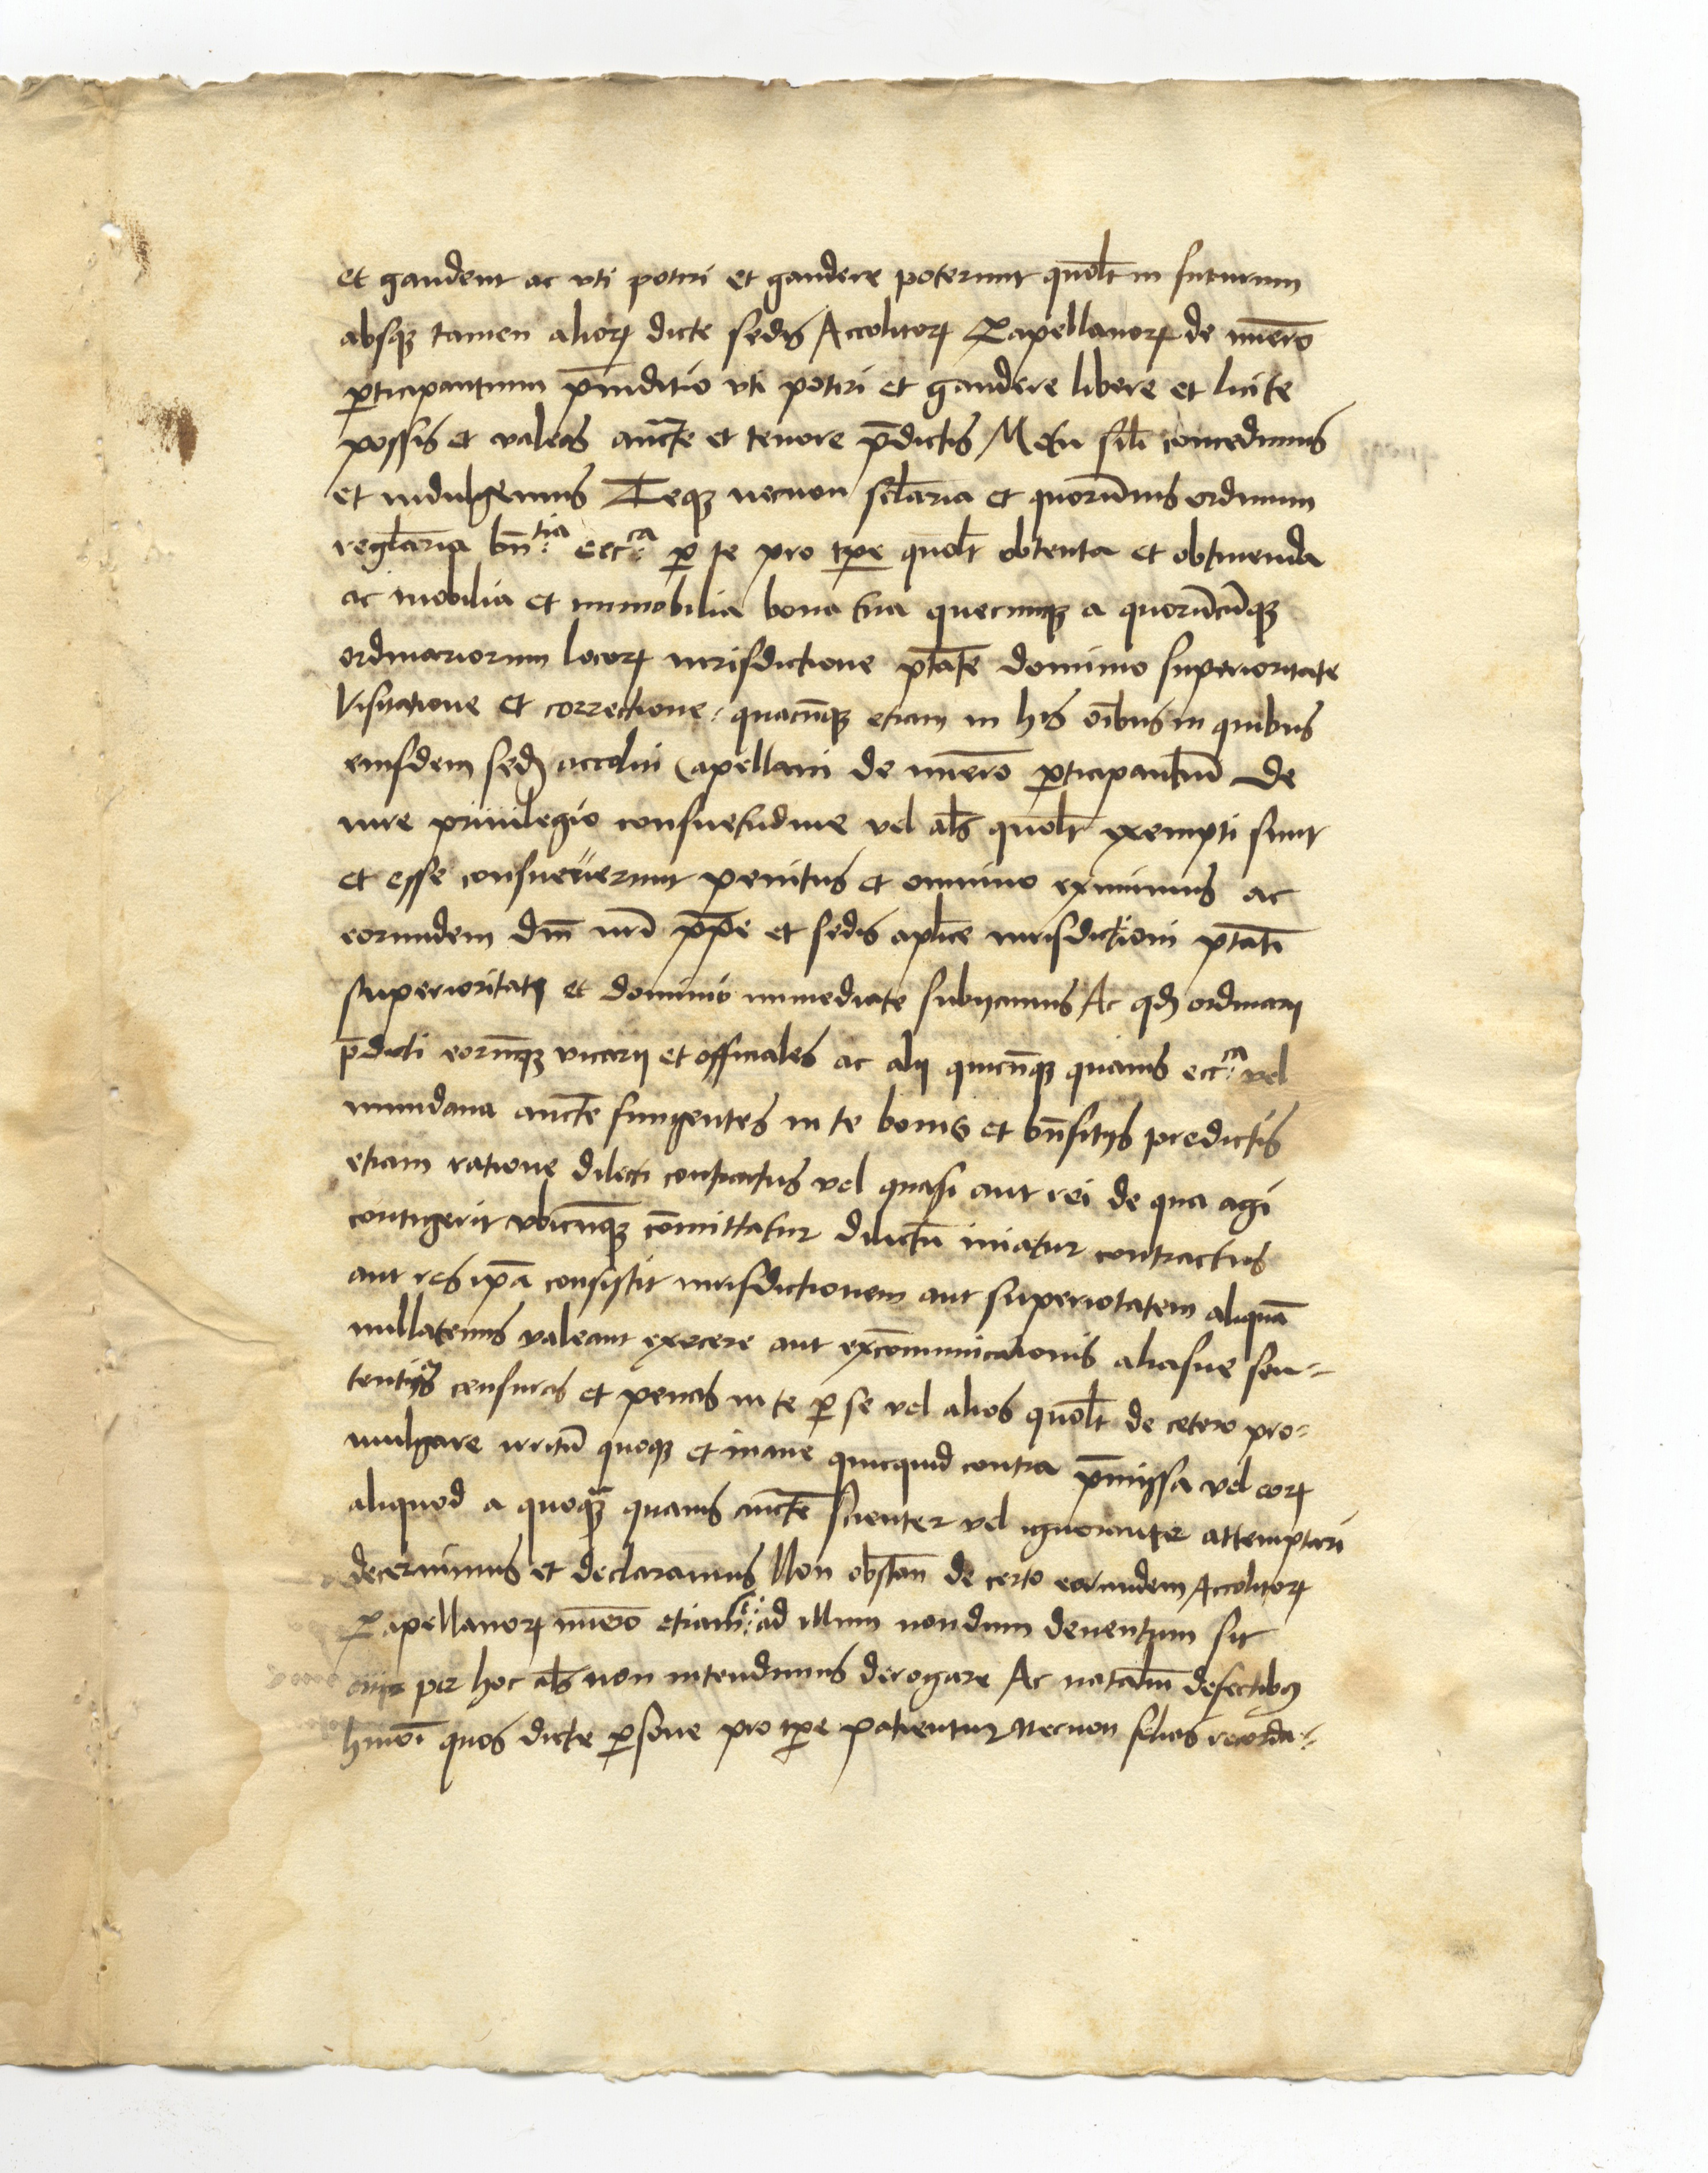 et gaudent ac vti potiri et gaudere poterunt quōlt in futurum
absqꝫ tamen alioꝝ dicte sedis Accolitoꝝ Capellanoꝝ de nūero
ꝑticipantium p̄iuditio vti potiri et gaudere libere et licite
possis et valeas aucte et tenore p̄dictis Motu sili concedimus
et indulgemus Teqꝫ necnon seclaria et quorūuis ordinum
reglaria bn̄tia eccca ꝑ te pro tpe quolt obtenta et obtinenda
ac mobilia et immobilia bona tua quecunqꝫ a quorūcūqꝫ
ordinariorum locoꝝ iurisdictione ptate dominio superioritate
Visitatione et correctione quacūqꝫ etiam in his oībus in quibus
eiusdem sedꝭ accoliti Capellani de nūero ꝑticipantiū de
iure priuilegio consuetudine vel als quolt exempti sunt
et esse consueuerunt penitus et omnino eximimus ac
eorundem dn̄i nr̄i pp̄e et sedis aplice iurisdictioni ptati
superioritati et dominio immediate subijcimus Ac qđ ordinarij
p̄dicti eorūqꝫ vicarij et officiales ac alij quicūqꝫ quauis eccca vel
mundana aucte fungentes in te bonis et bn̄fitijs predictis
etiam ratione dilicti contractus vel quasi aut rei de qua agi
contigerit vbicūqꝫ cōmittatur dilictū iniatur contractus
aut res ipā consistit iurisdictionem aut superiotatem aliquā
nullatenus valeant execere aut excōmunicationis aliasue sen-
tentias censuras et penas in te ꝑ se vel alios quolt de cetero pro-
mulgare irritū quoqꝫ et inane quicquid contra p̄missa vel eoꝝ
aliquod a quoqꝫ quauis aucte scienter vel ignoranter attemptari
decernimus et declaramus Non obstan de certo eorundem Accolitoꝝ
Capellanoꝝ nūero etiam si ad illum nondum deuentum sit
cui per hoc als non intendimus derogare Ac nataliū defectibꝫ
hmōi quos dicte ꝑsone pro tpe patientur Necnon felicis recorda-